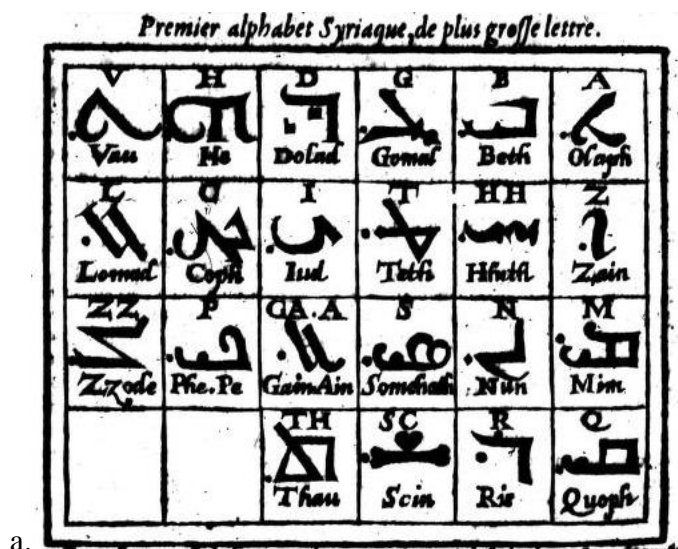 Premier alphabet Syriaque, de plus groſſe lettre.
V H D G B A
Vau He Dolad Gomal Beth Olaph
L C I T HH Z
Lomad Coph Iud Teth Hhuth Zain
ZZ P GA.A S N M
Zzode Phe.Pe Gain.Ain Somchath Nun Mim
TH SC R Q
Thau Scin Ris Quoph
a.